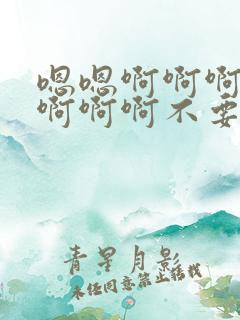 嗯嗯啊啊啊
啊啊啊不要
青星月影
未经同意禁止转载